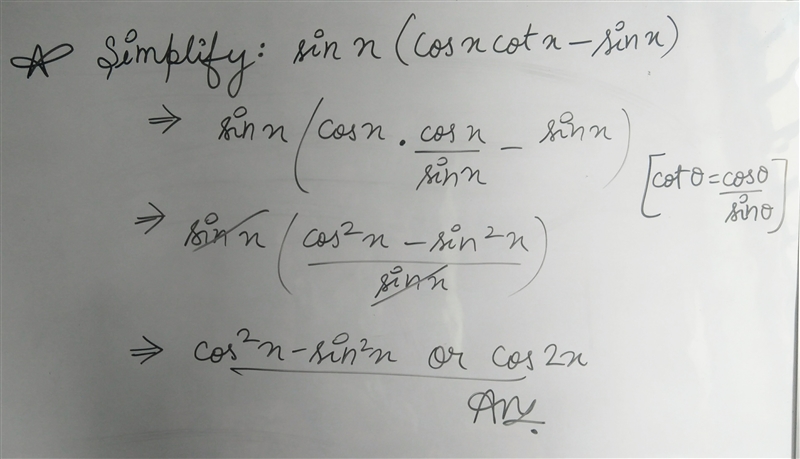 ☆ Simplify: sin x (cos x cot x - sin x)
⇒ sin x (cos x · cos x / sin x - sin x)
[cot θ = cos θ / sin θ]
⇒ sin x (cos²x - sin²x / sin x)
⇒ cos²x - sin²x or cos 2x
Ans.